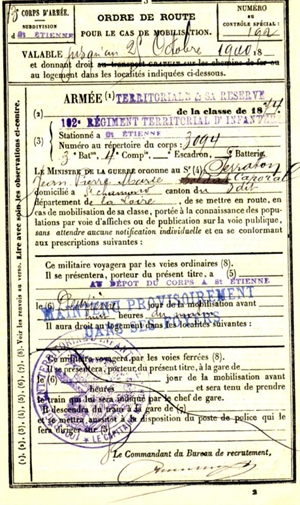 3
CORPS D'ARMÉE.
SUBDIVISION
d St ÉTIENNE
ORDRE DE ROUTE
POUR LE CAS DE MOBILISATION.
NUMÉRO
au
CONTRÔLE SPÉCIAL:
VALABLE jusqu'au 2 Octobre 1900
et donnant droit au transport GRATUIT sur les chemins de fer ou
au logement dans les localités indiquées ci-dessous.
ARMÉE (1) TERRITORIALE & SA RÉSERVE
(2) de la classe de 18
102e RÉGIMENT TERRITORIAL D'INFANTERIE
Stationné à St ÉTIENNE
Numéro au répertoire du corps: 3094
3 Bat on, 4 Comp ie, Escadron, Batterie.
LE MINISTRE DE LA GUERRE ordonne au Sr (4)
Jean Pierre Marie Caporal
domicilié à St Chamond canton du dit
département de la Loire, de se mettre en route, en
cas de mobilisation de sa classe, portée à la connaissance des popu-
lations par voie d'affiches ou de publication sur la voie publique,
sans attendre aucune notification individuelle et en se conformant
aux prescriptions suivantes:
Ce militaire voyagera par les voies ordinaires (8).
Il se présentera, porteur du présent titre, à (5)
AU DÉPOT DU CORPS A St ÉTIENNE
le (6) jour de la mobilisation avant
heures du
MAINTENU PROVISOIREMENT
DANS SES FOYERS
Il aura droit au logement dans les localités suivantes:
Ce militaire voyagera par les voies ferrées (8).
Il se présentera, porteur du présent titre, à la gare de
le (6) jour de la mobilisation avant
heures et sera tenu de prendre
le train qui lui sera indiqué par le chef de gare.
Il descendra du train à la gare de (7)
et se mettra aussitôt à la disposition du poste de police qui le
fera diriger sur (3)
Le Commandant du Bureau de recrutement,
LE CAPITAINE
(2), (3), (4), (5), (6), (7), (8). Voir les renvois au verso. Lire avec soin les observations ci-contre.
2